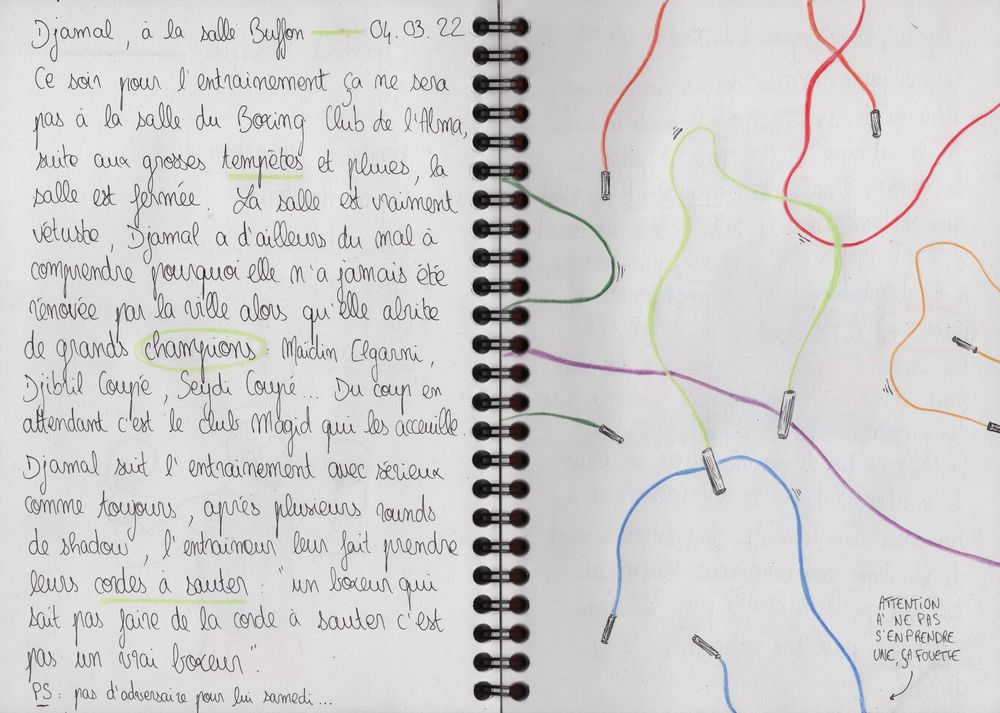 Djamal, à la salle Buffon — 04.03.22
Ce soir pour l'entrainement ça ne sera
pas à la salle du Boxing Club de l'Alma,
suite aux grosses tempêtes et pluies, la
salle est fermée. La salle est vraiment
vétuste, Djamal a d'ailleurs du mal à
comprendre pourquoi elle n'a jamais été
rénovée par la ville alors qu'elle abrite
de grands champions : Maidin Elgarni,
Djibril Coupé, Seydi Coupé... Du coup en
attendant c'est le club Magid qui les acceuille.
Djamal suit l'entrainement avec sérieux
comme toujours, après plusieurs rounds
de shadow, l'entraineur leur fait prendre
leurs cordes à sauter : "un boxeur qui
sait pas faire de la corde à sauter c'est
pas un vrai boxeur".
PS : pas d'adversaire pour lui samedi...
ATTENTION
À NE PAS
S'EN PRENDRE
UNE, ÇA FOUETTE